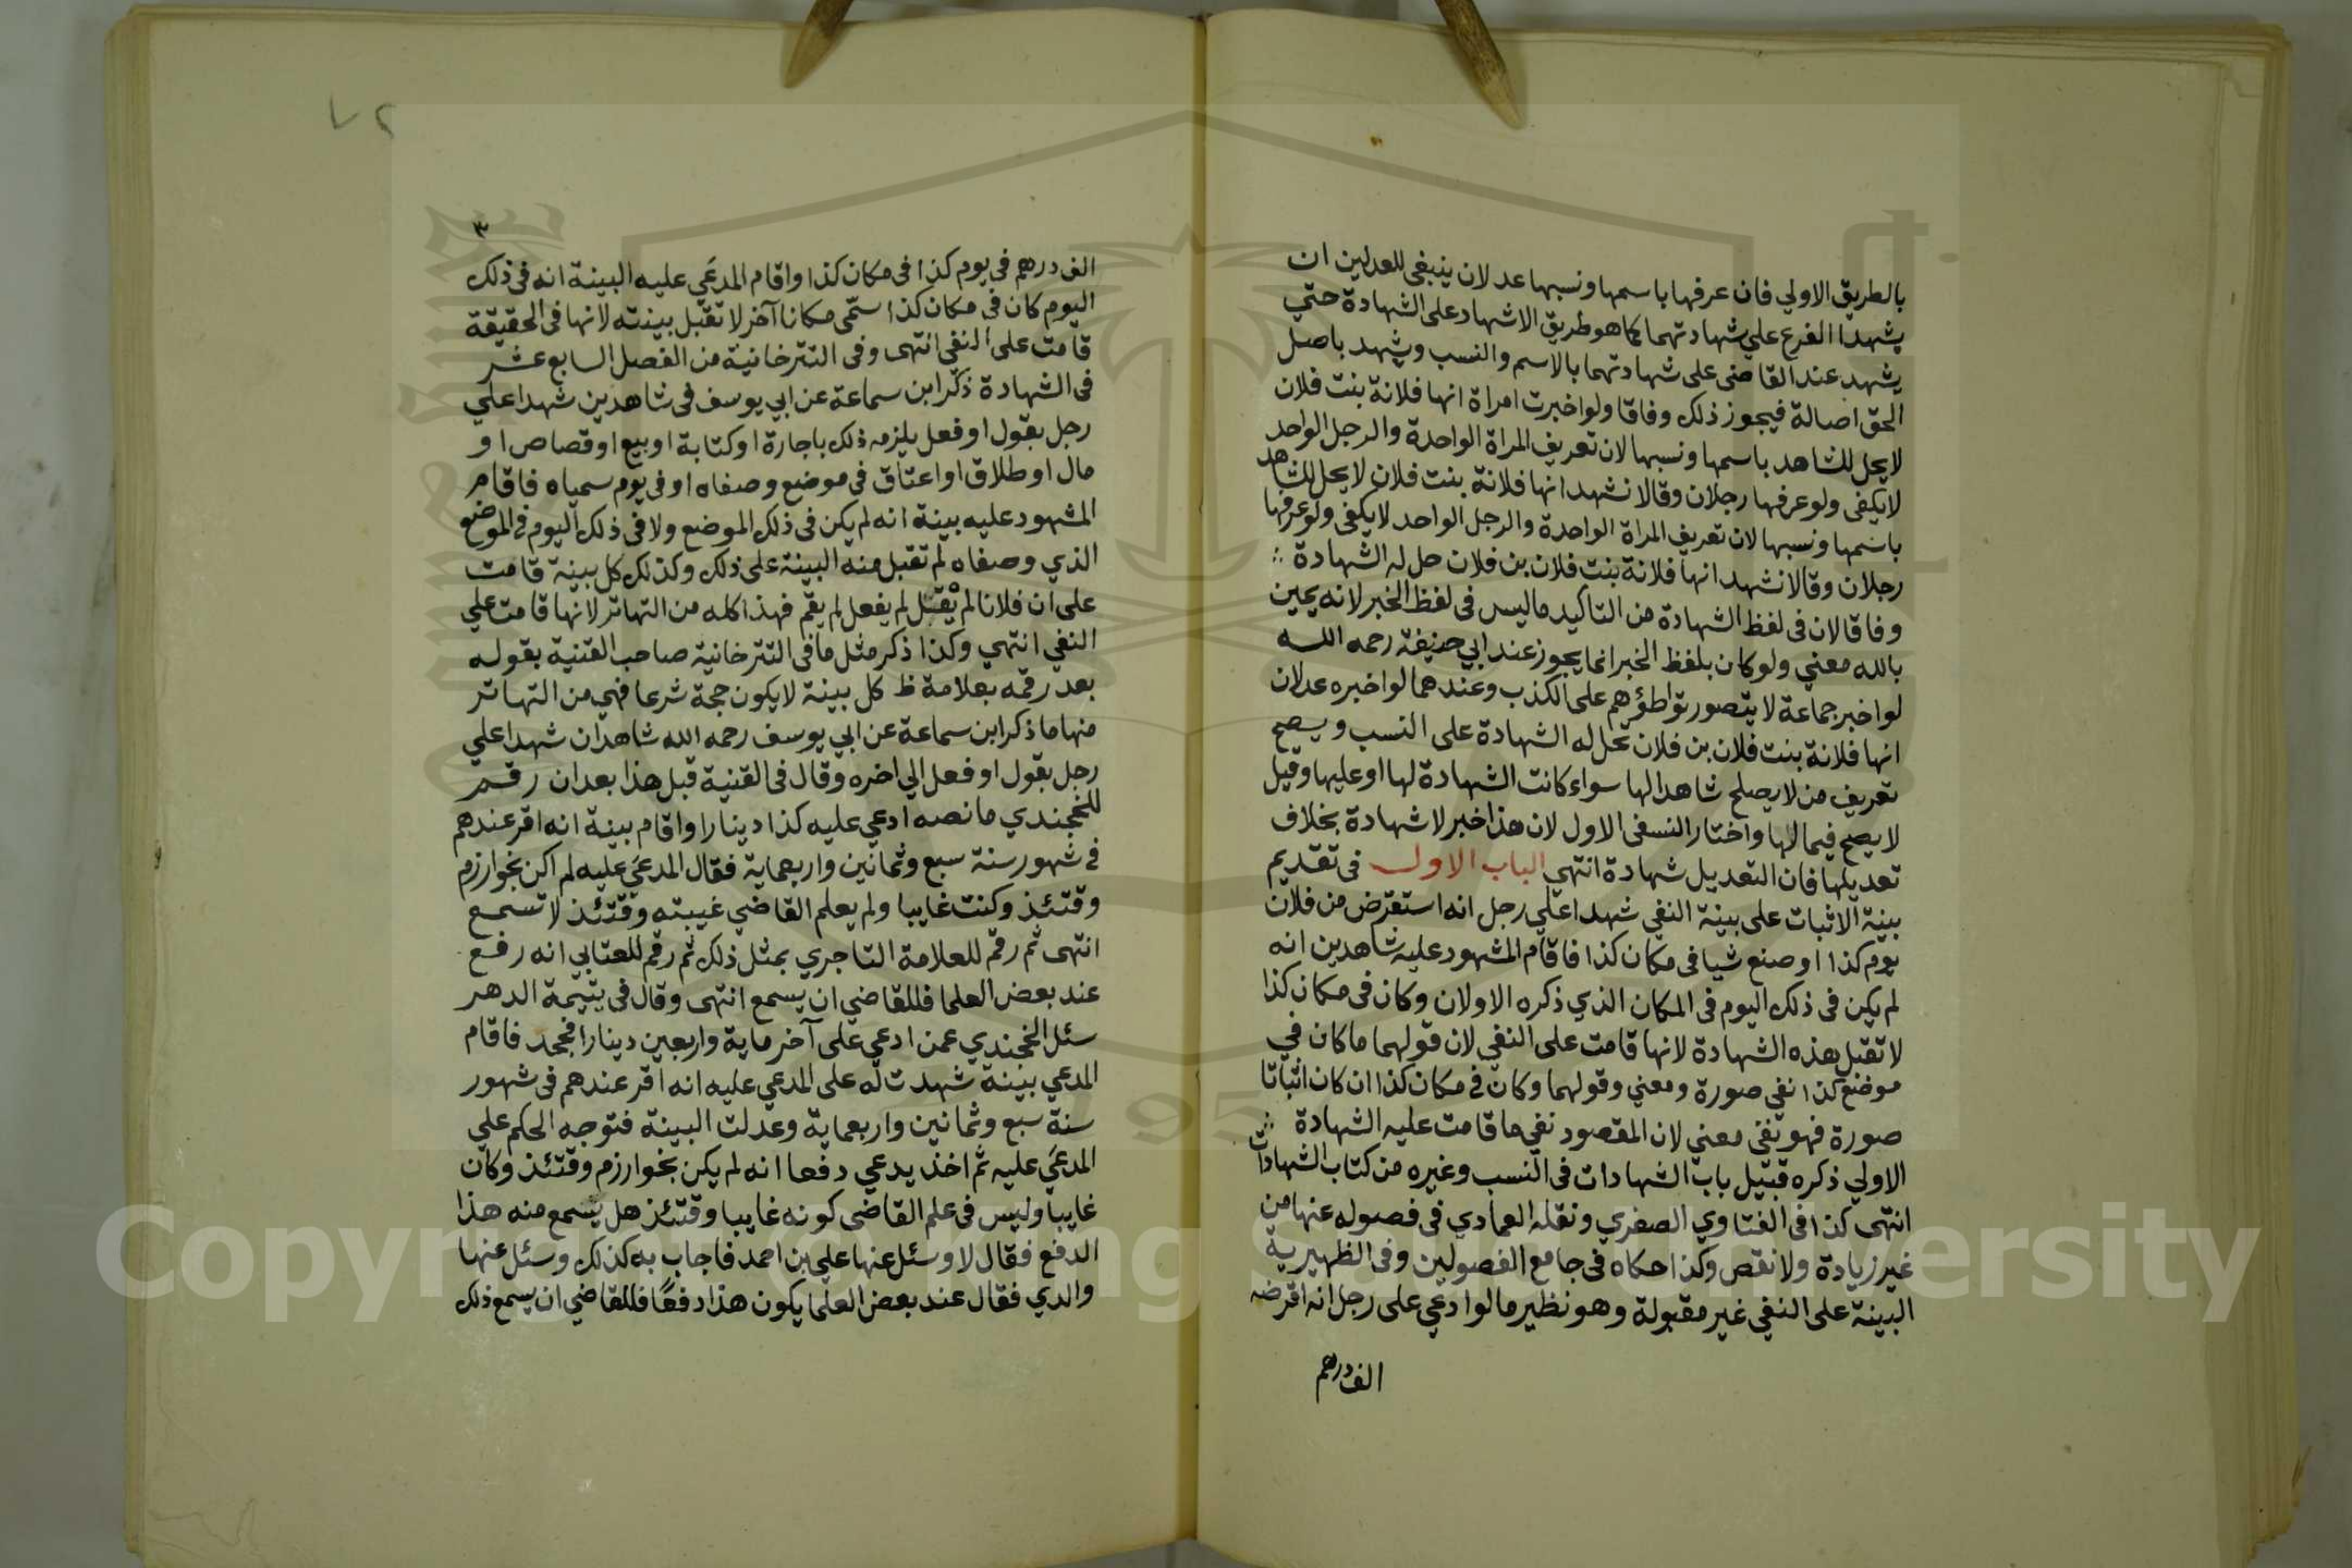 بالطريق الاولي فان عرفها باسمها ونسبها عدلان ينبغي للعدلين ان
يشهدا الفرع علي شهادتهما كما هو طريق الاشهاد على الشهادة حتي
يشهد عند القاضى على شهادتهما بالاسم والنسب ويشهد باصل
الحق اصالة فيجوز ذلك وفاقا ولو اخبرت امراة انها فلانة بنت فلان
لا يحل للشاهد باسمها ونسبها لان تعريف المراة الواحدة والرجل الواحد
لا يكفى ولو عرفها رجلان وقالا نشهد انها فلانة بنت فلان لا يحل للشاهد
باسمها ونسبها لان تعريف المراة الواحدة والرجل الواحد لا يكفى ولو عرفها
رجلان وقالا نشهد انها فلانة بنت فلان بن فلان حل له الشهادة
وفاقا لان فى لفظ الشهادة من التاكيد ما ليس فى لفظ الخبر لانه يمين
بالله معني ولو كان بلفظ الخبر انما يجوز عند ابي حنيفة رحمه الله
لو اخبر جماعة لا يتصور تواطؤهم على الكذب وعندهما لو اخبره عدلان
انها فلانة بنت فلان بن فلان تحل له الشهادة على النسب ويصح
تعريف من لا يصلح شاهدا لها سواء كانت الشهادة لها او عليها وقيل
لا يصح فيما لها واختار النسفى الاول لان هذا خبر لا شهادة بخلاف
تعديلها فان التعديل شهادة انتهي الباب الاول فى تقديم
بينة الاثبات على بينة النفي شهدا علي رجل انه استقرض من فلان
يوم كذا او صنع شيا فى مكان كذا فاقام المشهود عليه شاهدين انه
لم يكن فى ذلك اليوم فى المكان الذي ذكره الاولان وكان فى مكان كذا
لا تقبل هذه الشهادة لانها قامت على النفي لان قولهما ما كان في
موضع كذا نفي صورة ومعني وقولهما وكان فى مكان كذا ان كان اثباتا
صورة فهو نفى معني لان المقصود نفي ما قامت عليه الشهادة
الاولي ذكره قبيل باب الشهادات فى النسب وغيره من كتاب الشهادات
انتهى كذا فى الفتاوي الصغري ونقله العمادي فى فصوله عنها من
غير زيادة ولا نقص وكذا حكاه فى جامع الفصولين وفى الظهيرية
البينة على النفي غير مقبولة وهو نظير ما لو ادعي على رجل انه اقرضه
الف درهم
٣
الف درهم فى يوم كذا فى مكان كذا واقام المدعي عليه البينة انه فى ذلك
اليوم كان فى مكان كذا سمّى مكانا آخر لا تقبل بينته لانها فى الحقيقة
قامت على النفي انتهى وفى التترخانية من الفصل السابع عشر
فى الشهادة ذكر ابن سماعة عن ابي يوسف فى شاهدين شهدا علي
رجل بقول او فعل يلزمه ذلك باجارة او كتابة او بيع او قصاص او
مال او طلاق او اعتاق فى موضع وصفاه او فى يوم سمياه فاقام
المشهود عليه بينة انه لم يكن فى ذلك الموضع ولا فى ذلك اليوم فى الموضع
الذي وصفاه لم تقبل منه البينة على ذلك وكذلك كل بينة قامت
على ان فلانا لم يقتل لم يفعل لم يقم فهذا كله من التهاتر لانها قامت علي
النفي انتهي وكذا ذكر مثل ما فى التترخانية صاحب القنية بقوله
بعد رقمه بعلامة ظ كل بينة لا يكون حجة شرعا فهي من التهاتر
منها ما ذكر ابن سماعة عن ابي يوسف رحمه الله شاهدان شهدا علي
رجل بقول او فعل الي اخره وقال فى القنية قبل هذا بعد ان رقم
للخجندي ما نصه ادعي عليه كذا دينارا واقام بينة انه اقر عندهم
فى شهور سنة سبع وثمانين واربعماية فقال المدعي عليه لم اكن بخوارزم
وقتئذ وكنت غايبا ولم يعلم القاضي غيبته وقتئذ لا تسمع
انتهى ثم رقم للعلامة التاجري بمثل ذلك ثم رقم للعتابي انه رفع
عند بعض العلما فللقاضي ان يسمع انتهى وقال فى يتيمة الدهر
سئل الخجندي عمن ادعي على آخر ماية واربعين دينارا فجحد فاقام
المدعي بينة شهدت له على المدعي عليه انه اقر عندهم فى شهور
سنة سبع وثمانين واربعماية وعدلت البينة فتوجه الحكم علي
المدعي عليه ثم اخذ يدعي دفعا انه لم يكن بخوارزم وقتئذ وكان
غايبا وليس فى علم القاضى كونه غايبا وقتئذ هل يسمع منه هذا
الدفع فقال لا وسئل عنها علي بن احمد فاجاب به كذلك وسئل عنها
والدي فقال عند بعض العلما يكون هذا دفعا فللقاضي ان يسمع ذلك